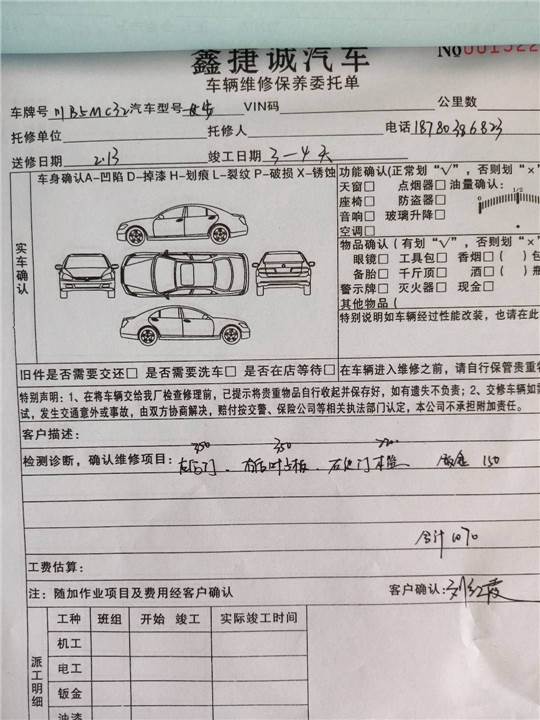 鑫捷诚汽车
No
车辆维修保养委托单
车牌号 川B5MC32 汽车型号 VIN码 公里数
托修单位 托修人 电话 18780386823
送修日期 2.13 竣工日期 3-4天
车身确认A-凹陷 D-掉漆 H-划痕 L-裂纹 P-破损 X-锈蚀
功能确认(正常划“√”,否则划“×
天窗□ 点烟器□ 油量确认:
座椅□ 防盗器□
1/2
音响□ 玻璃升降□
空调□
实车确认
物品确认(有划“√”,否则划“×”
眼镜□ 工具包□ 香烟□( )包
备胎□ 千斤顶□ 酒□( )瓶
警示牌□ 灭火器□ 现金□
其他物品(
特别说明如车辆经过性能改装,也请在此
旧件是否需要交还□ 是否需要洗车□ 是否在店等待□ 在车辆进入维修之前,请自行保管贵重物
特别声明:1、在将车辆交给我厂检查修理前,已提示将贵重物品自行收起并保存好,如有遗失不负责;2、交修车辆如
试,发生交通意外或事故,由双方协商解决,赔付按交警、保险公司等相关执法部门认定,本公司不承担附加责任。
客户描述:
350 350
检测诊断,确认维修项目: 钣金 150
合计 1070
工费估算:
注:随加作业项目及费用经客户确认 客户确认: 刘红霞
派工明细
工种 班组 开始 竣工 实际竣工时间
机工
电工
钣金
油漆